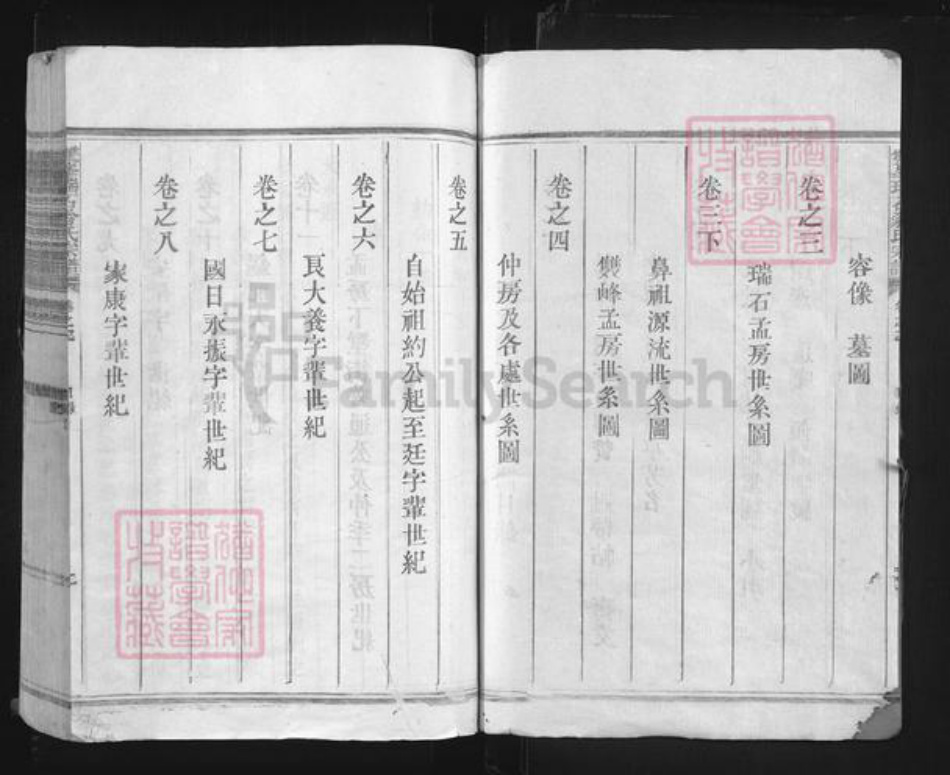 容像　墓圖
卷之三
瑞石孟房世系圖
卷三下
鼻祖源流世系圖
雙峰孟房世系圖
卷之四
仲房及各處世系圖
卷之五
自始祖約公起至廷字輩世紀
卷之六
良大養字輩世紀
卷之七
國日永振字輩世紀
卷之八
家康字輩世紀
FamilySearch